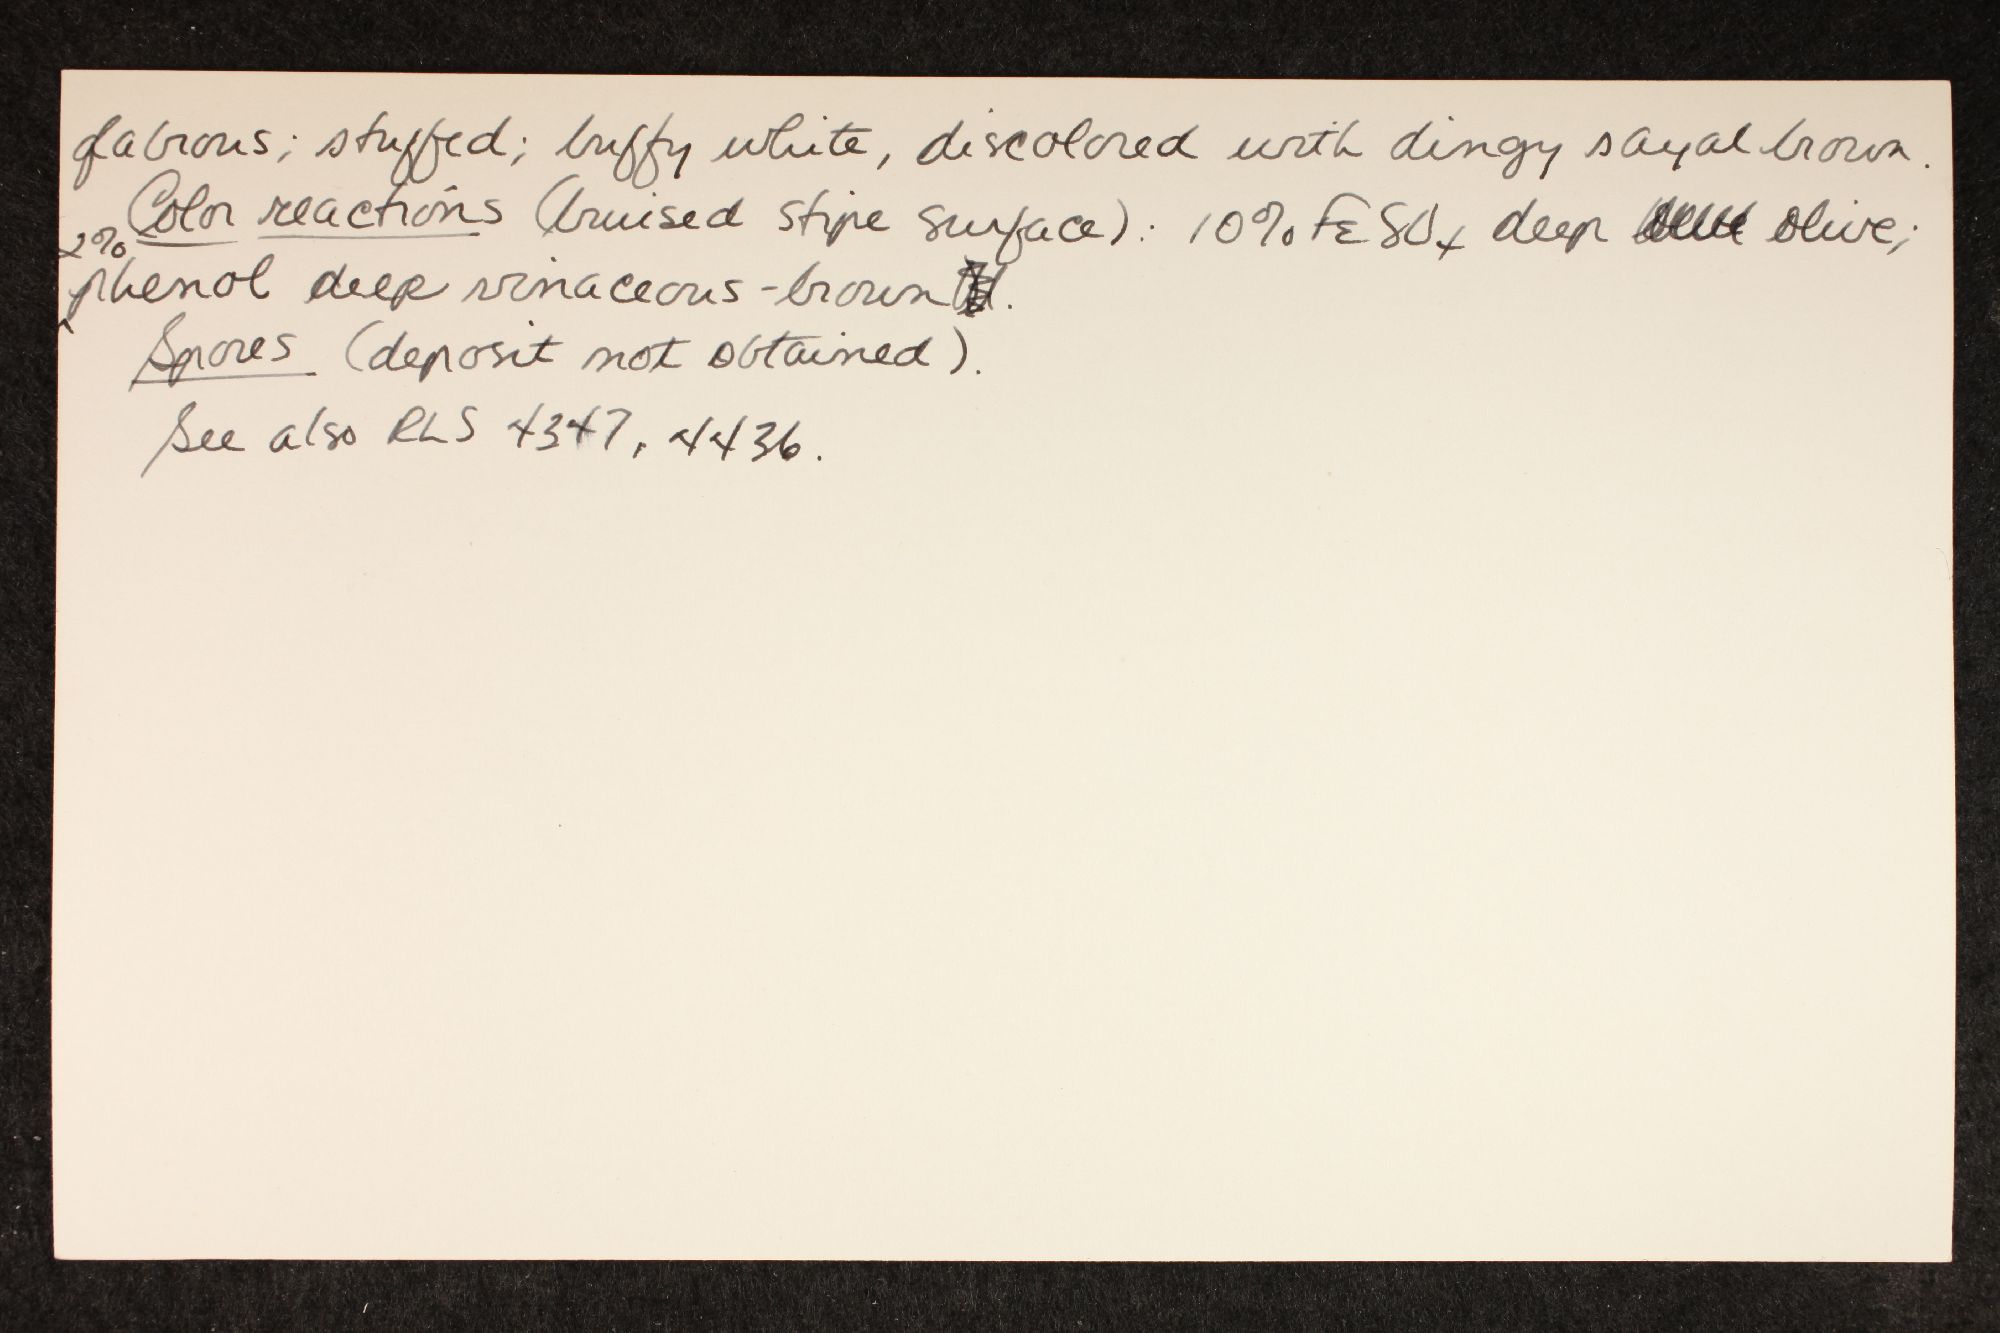 glabrous; stuffed; buffy white, discolored with dingy sayal brown.
Color reactions (bruised stipe surface): 10% FeSO4 deep olive;
2% phenol deep vinaceous-brown.
Spores (deposit not obtained).
See also RLS 4347, 4436.